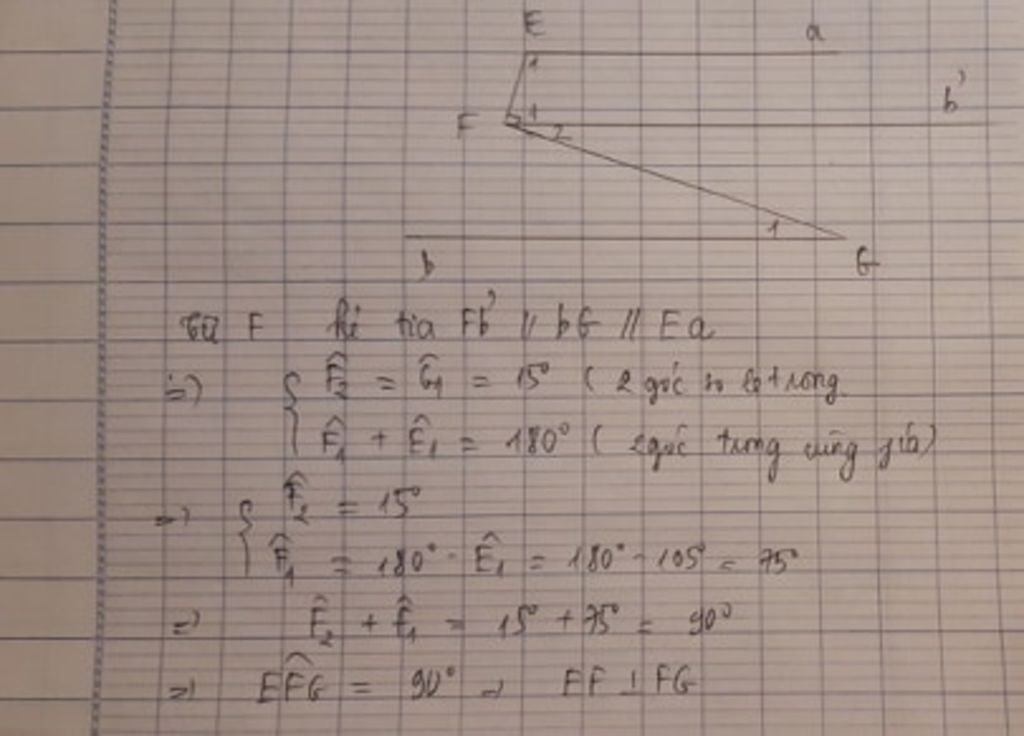 E a
1
b'
F 1
2
1
b G
Từ F kẻ tia Fb' // bG // Ea
=> { F̂₂ = Ĝ₁ = 15° ( 2 góc so le trong
F̂₁ + Ê₁ = 180° ( 2 góc trong cùng phía)
=> { F̂₂ = 15°
F̂₁ = 180° - Ê₁ = 180° - 105° = 75°
=> F̂₂ + F̂₁ = 15° + 75° = 90°
=> EF̂G = 90° => EF ⊥ FG